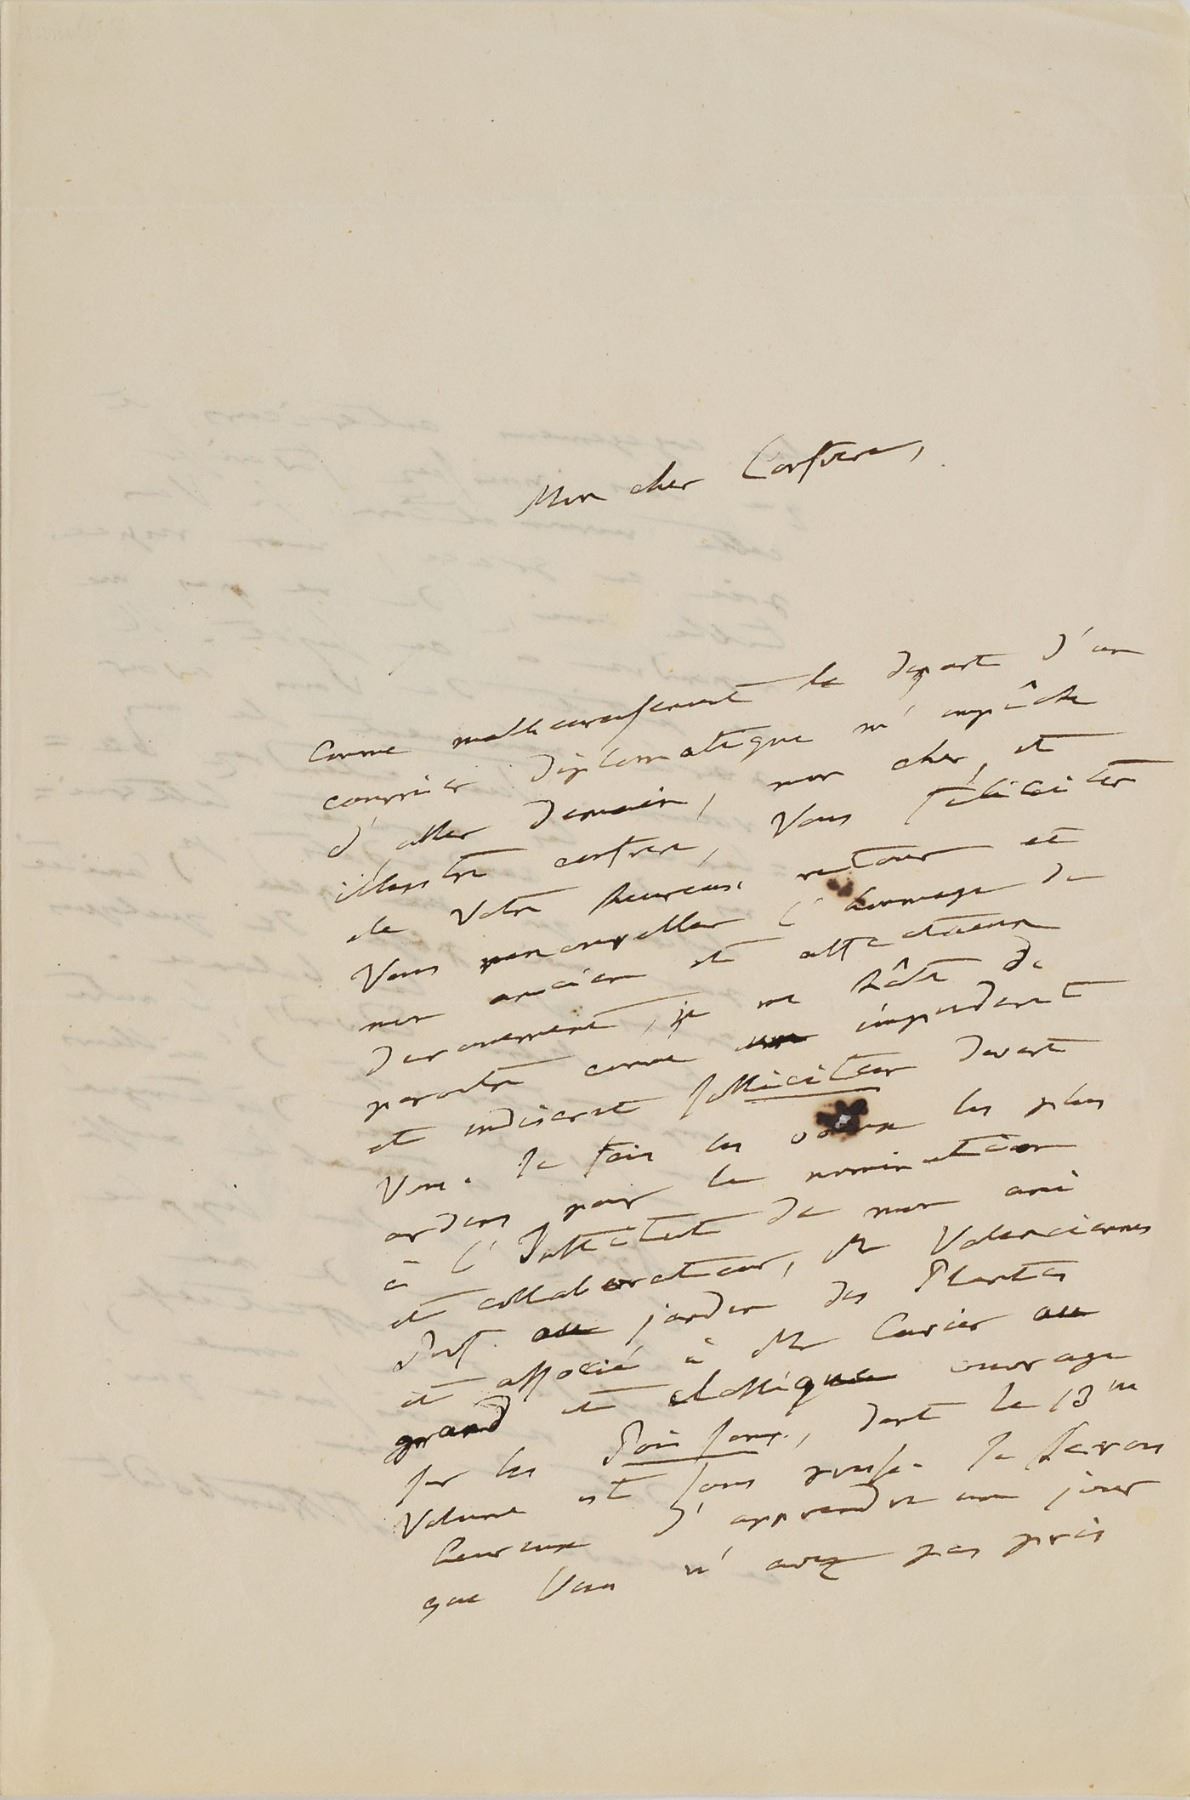 Mon cher Confrere,
Comme malheureusement le depart d'un
courrier diplomatique m'empêche
d'aller demain, mon cher et
illustre confrere, Vous féliciter
de Votre heureux retour et
Vous renouveller l'hommage de
mon ancien et affectueux
devouement, je me hâte de
paroitre comme un impudent
et indiscret solliciteur devant
Vous. Je fais les voeux les plus
ardens pour la nomination
à l'Institut de mon ami
et collaborateur, Mr Valenciennes
Prof. au jardin des Plantes
et associé à Mr Cuvier au
grand et classique ouvrage
sur les Poissons, dont le 13me
Volume est sous presse. Je serais
heureux d'apprendre un jour
que Vous n'avez pas pris